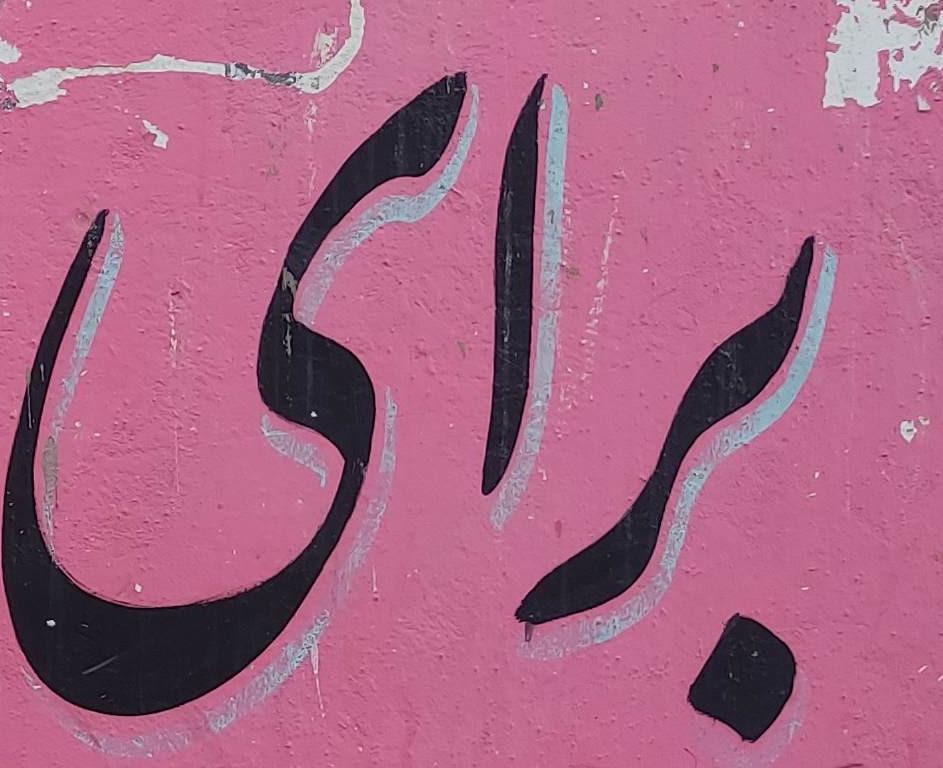 برای